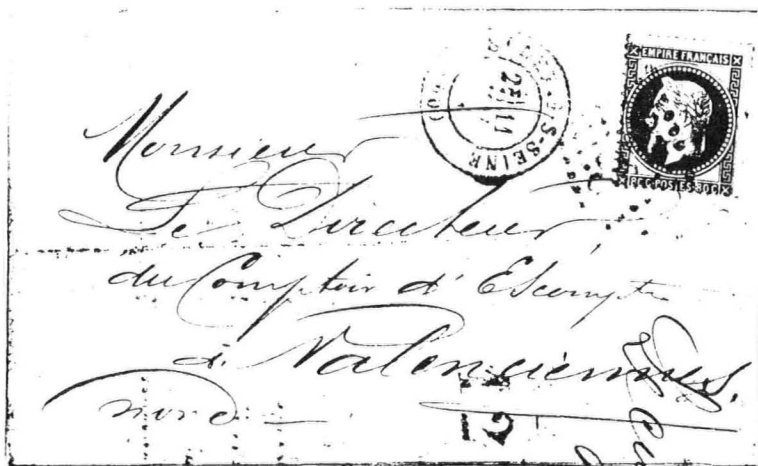 EMPIRE FRANÇAIS
S-SEINE
Monsieur
Le Directeur
du Comptoir d'Escompte
à Valenciennes,
nord